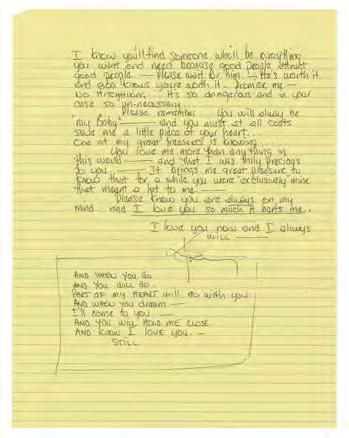 I know you'll find someone who'll be everything
you want and need because good people attract
good people — Please wait for him — He's worth it
and God knows you're worth it. Promise me —
No Hitchhiking. It's so dangerous and in your
case so un-necessary...
Please remember You will always be
my Baby — and you must at all costs
save me a little place of your heart...
One of my great treasures is knowing
You love me more than anything in
this world — and that I was truly precious
to you. It brings me great pleasure to
know that for a while you were "exclusively" mine
that meant a lot to me.
Please know you are always on my
mind and I love you so much it hurts me..
I love you now and I always
WILL —
AND WHEN YOU GO
AND YOU WILL GO..
PART OF MY HEART WILL GO WITH YOU..
AND WHEN YOU DREAM —
I'LL COME TO YOU —
AND YOU WILL HOLD ME CLOSE
AND KNOW I LOVE YOU —
STILL